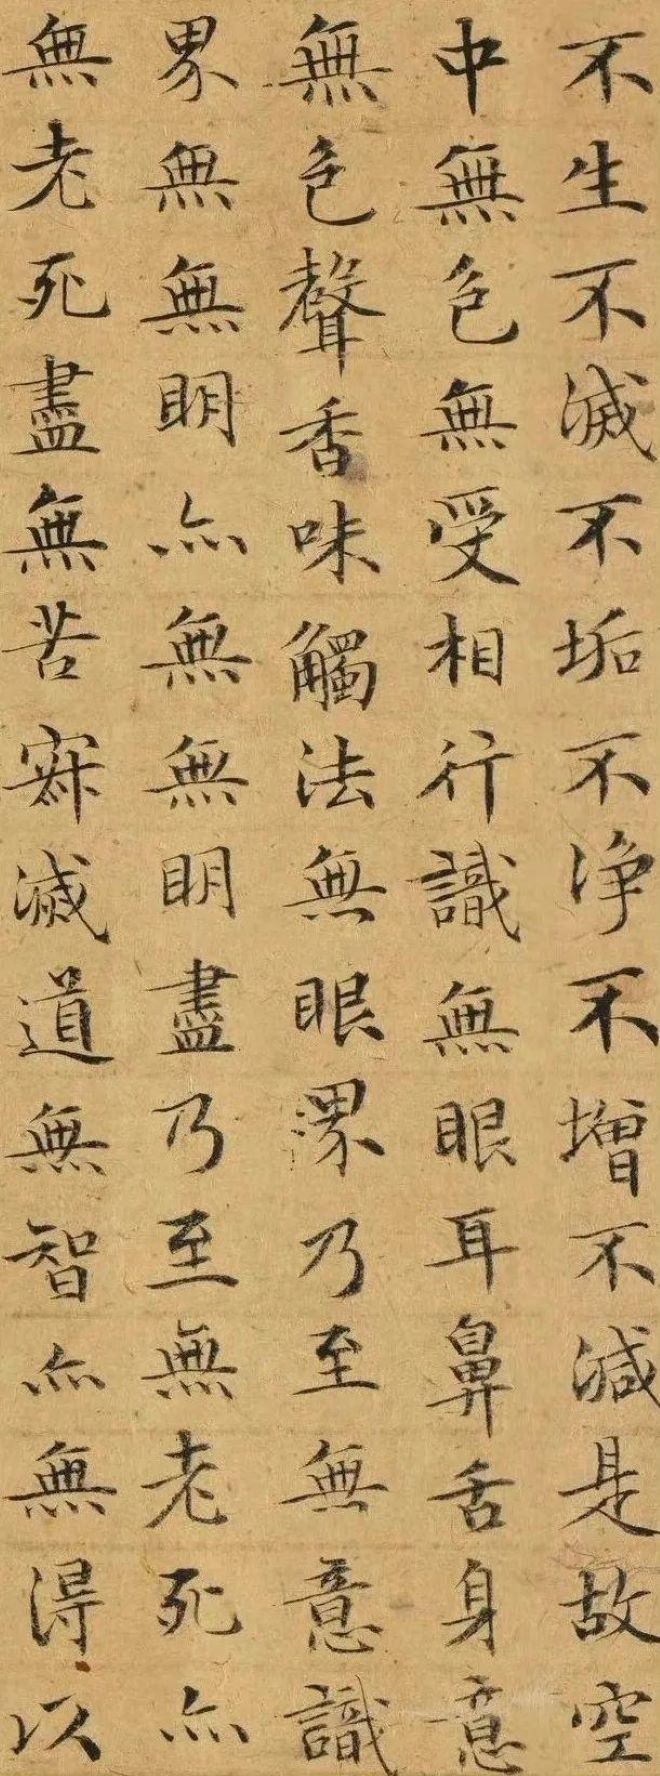 不生不滅不垢不净不增不減是故空
中無色無受相行識無眼耳鼻舌身意
無色聲香味觸法無眼界乃至無意識
界無無明亦無無明盡乃至無老死亦
無老死盡無苦寂滅道無智亦無得以